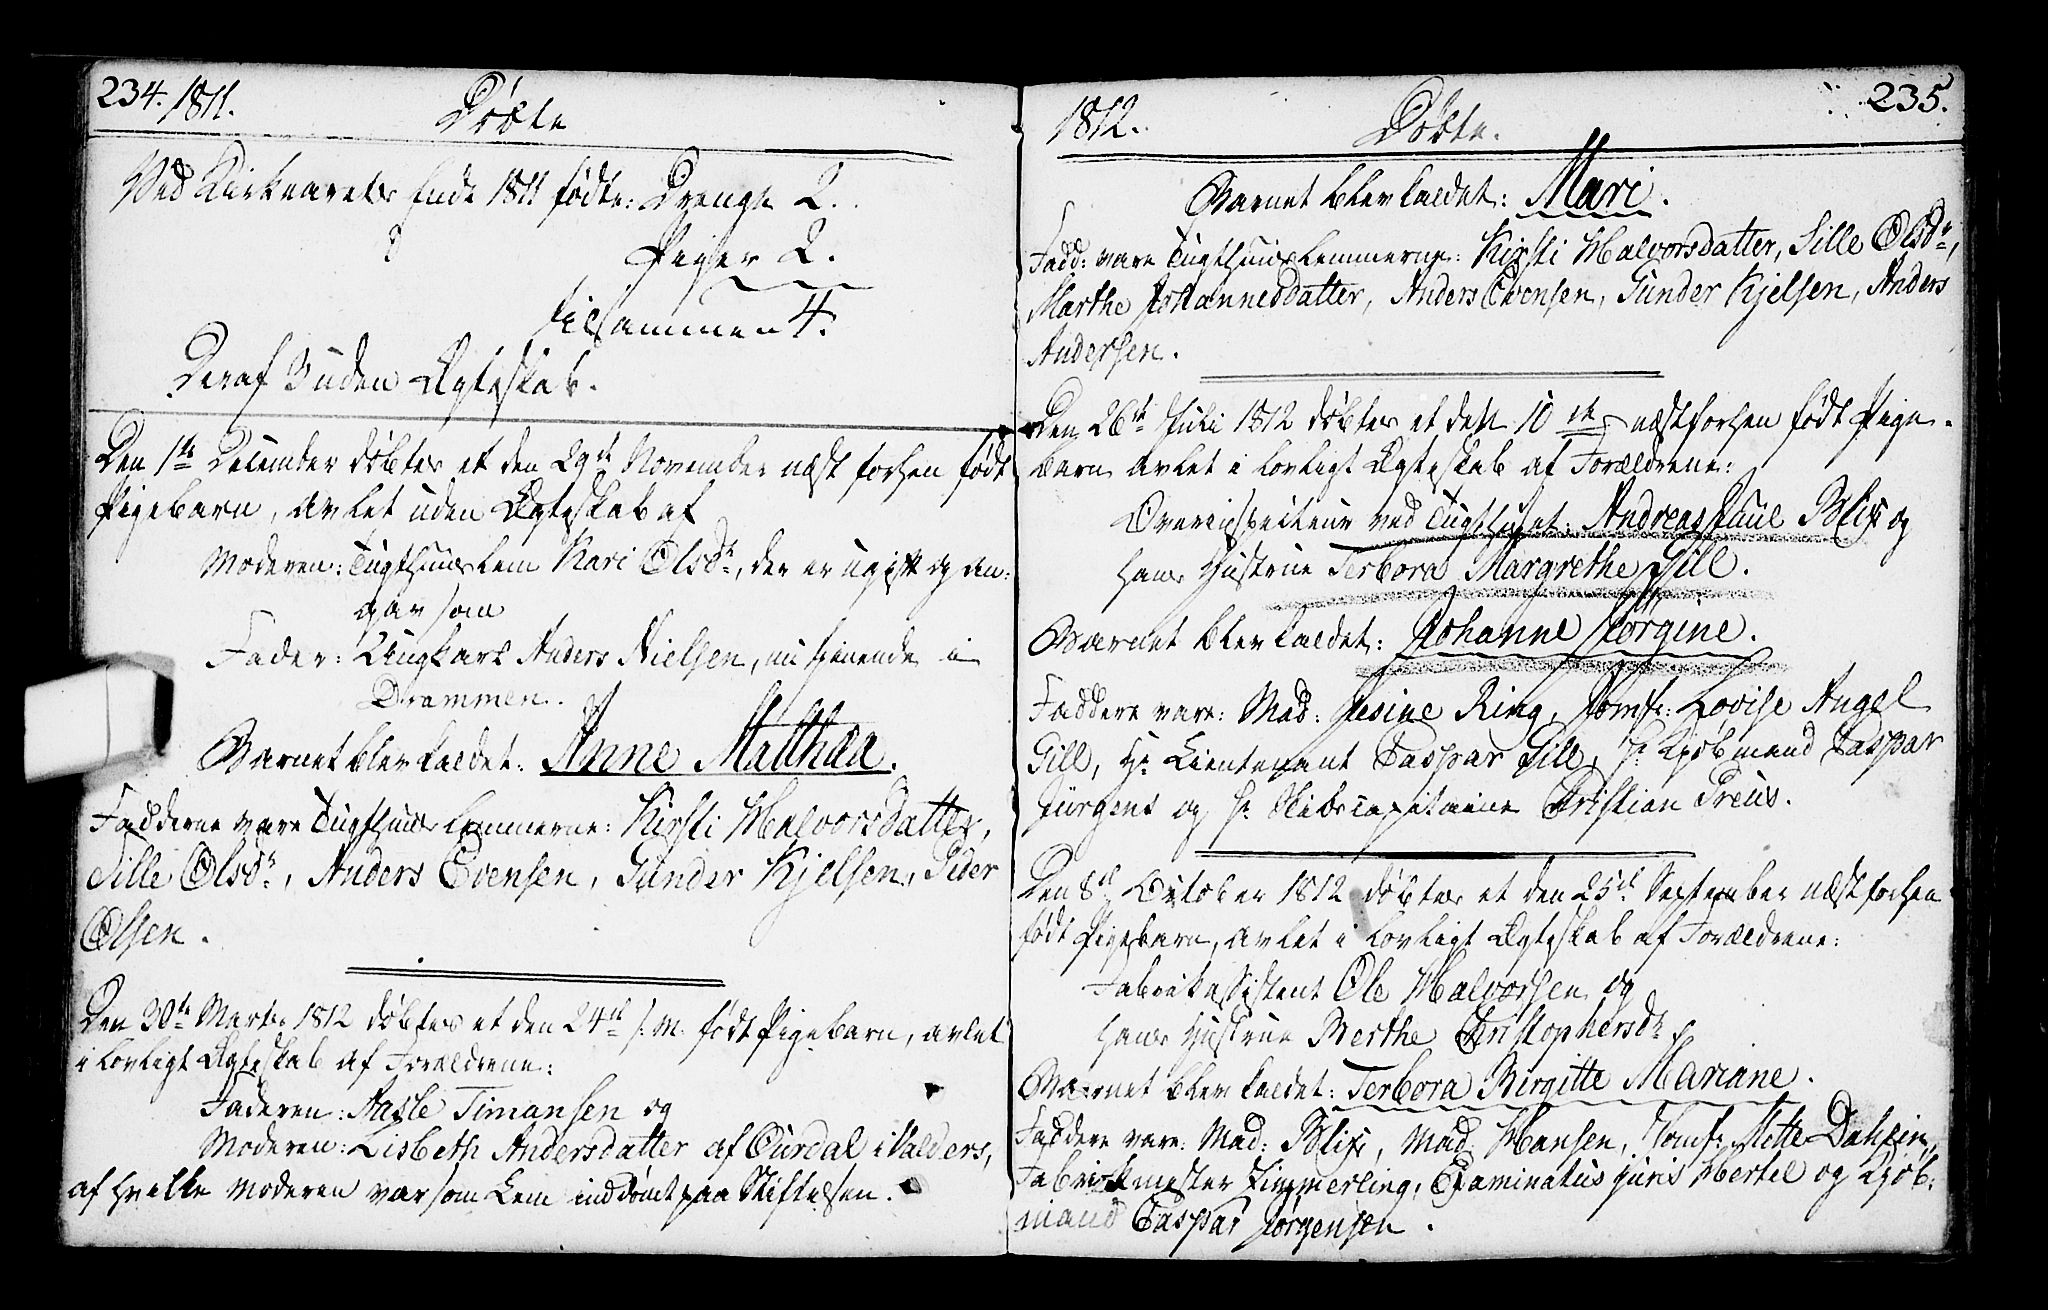 234. 1811.
Döbte
Ved Kirkeaarets Ende 1811 födte: Drenge 2.
Piger 2.
tilsammen 4.
Deraf 3 uden Ægteskab.
Den 1te December döbtes et den 29de November næst forhen födt
Pigebarn, avlet uden Ægteskab af
Moderen: Tugthuuslem Kari Olsdr, der er ugift og an-
gav som
Fader: Ungkarl Anders Nielsen, nu tienende i
Drammen.
Barnet blev kaldet: Anne Matthæa.
Fadderne vare Tugthuus Lemmerne: Kirsti Halvorsdatter,
Sille Olsdr, Anders Evensen, Gunder Kjelsen, Peder
Olsen.
Den 30te Marts 1812 döbtes et den 24de s. M. födt Pigebarn, avlet
i lovligt Ægteskab af Forældrene:
Faderen: Aasle Timansen og
Moderen: Lisbeth Andersdatter af Ourdal i Valders,
af hvilke Moderen var som Lem inddömt paa Stiftelsen.
1812. Döbte. 235.
Barnet blev kaldet: Mari.
Fadd: vare Tugthuuslemmerne: Kirsti Halvorsdatter, Sille Olsdr,
Marthe Johannesdatter, Anders Evensen, Gunder Kjelsen, Anders
Andersen.
Den 26de Juli 1812 döbtes et den 10de næstforhen födt Pige-
barn avlet i lovligt Ægteskab af Forældrene:
Overinspecteur ved Tugthuset: Andreas Juul Blix og
hans Hustrue Terbora Margrethe Gill.
Barnet blev kaldet: Johanne Jörgine.
Faddere vare: Mad: Jesine Ring, Jomfr: Lovise Angel
Gill, Hr Lieutenant Caspar Gill, Hr Kjöbmand Caspar
Jürgens og Hr Skibscapitaine Christian Preus.
Den 8de October 1812 döbtes et den 25de September næst forhen
födt Pigebarn, avlet i lovligt Ægteskab af Forældrene:
Fabrikassistent Ole Halvorsen og
hans Hustrue Berthe Christophersdr
Barnet blev kaldet: Terbora Birgitte Mariane.
Faddere vare: Mad: Blix, Mad: Hansen, Jomfr: Mette Dahlin,
Fabrikmester Zimmerling, Examinatus juris Hertel og Kjöb-
mand Caspar Jörgensen.